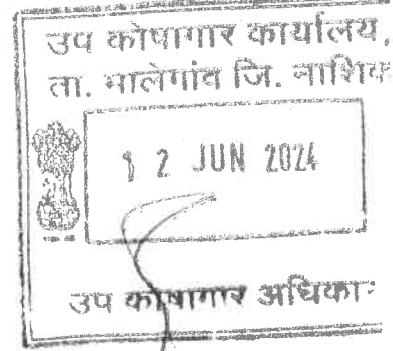 उप कोषागार कार्यालय,
ता. मालेगांव जि. नाशिक
12 JUN 2024
उप कोषागार अधिका